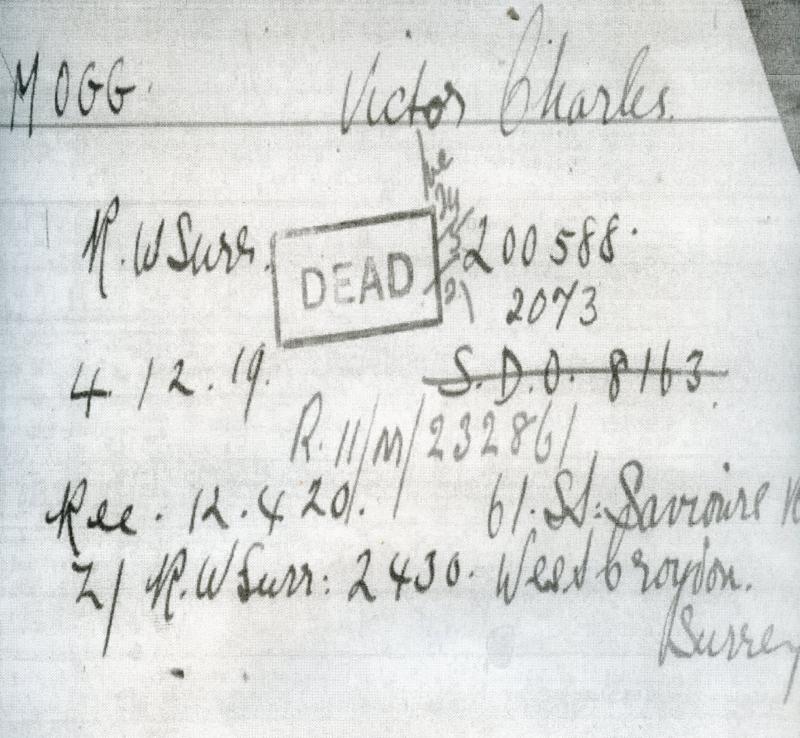 MOGG. Victor Charles.
R. W Surr. DEAD 200588.
2073
4.12.19. S.D.O. 8163
R.11/M/23286/
Rec. 12.4.20. 61. St: Saviours
Z/ R.W Surr: 2430. West Croydon.
Surrey